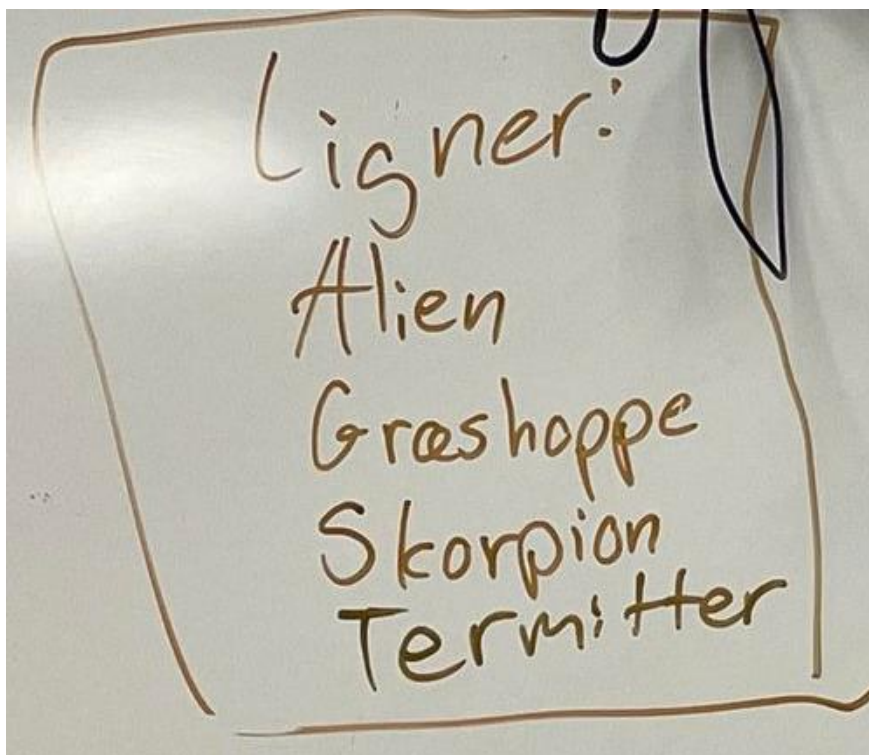 Ligner:
Alien
Græshoppe
Skorpion
Termitter